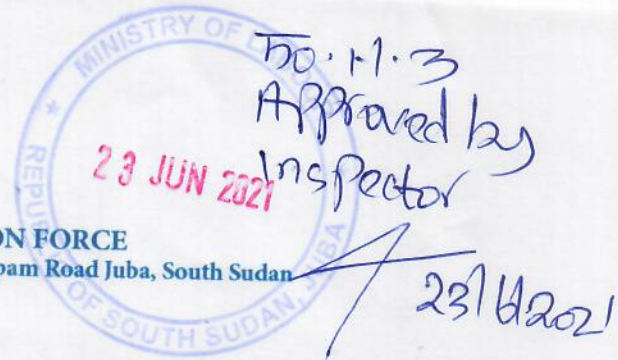 MINISTRY OF
REPUBLIC OF SOUTH SUDAN, JUBA
23 JUN 2021
Approved by
Inspector
23/6/2021
ON FORCE
bam Road Juba, South Sudan